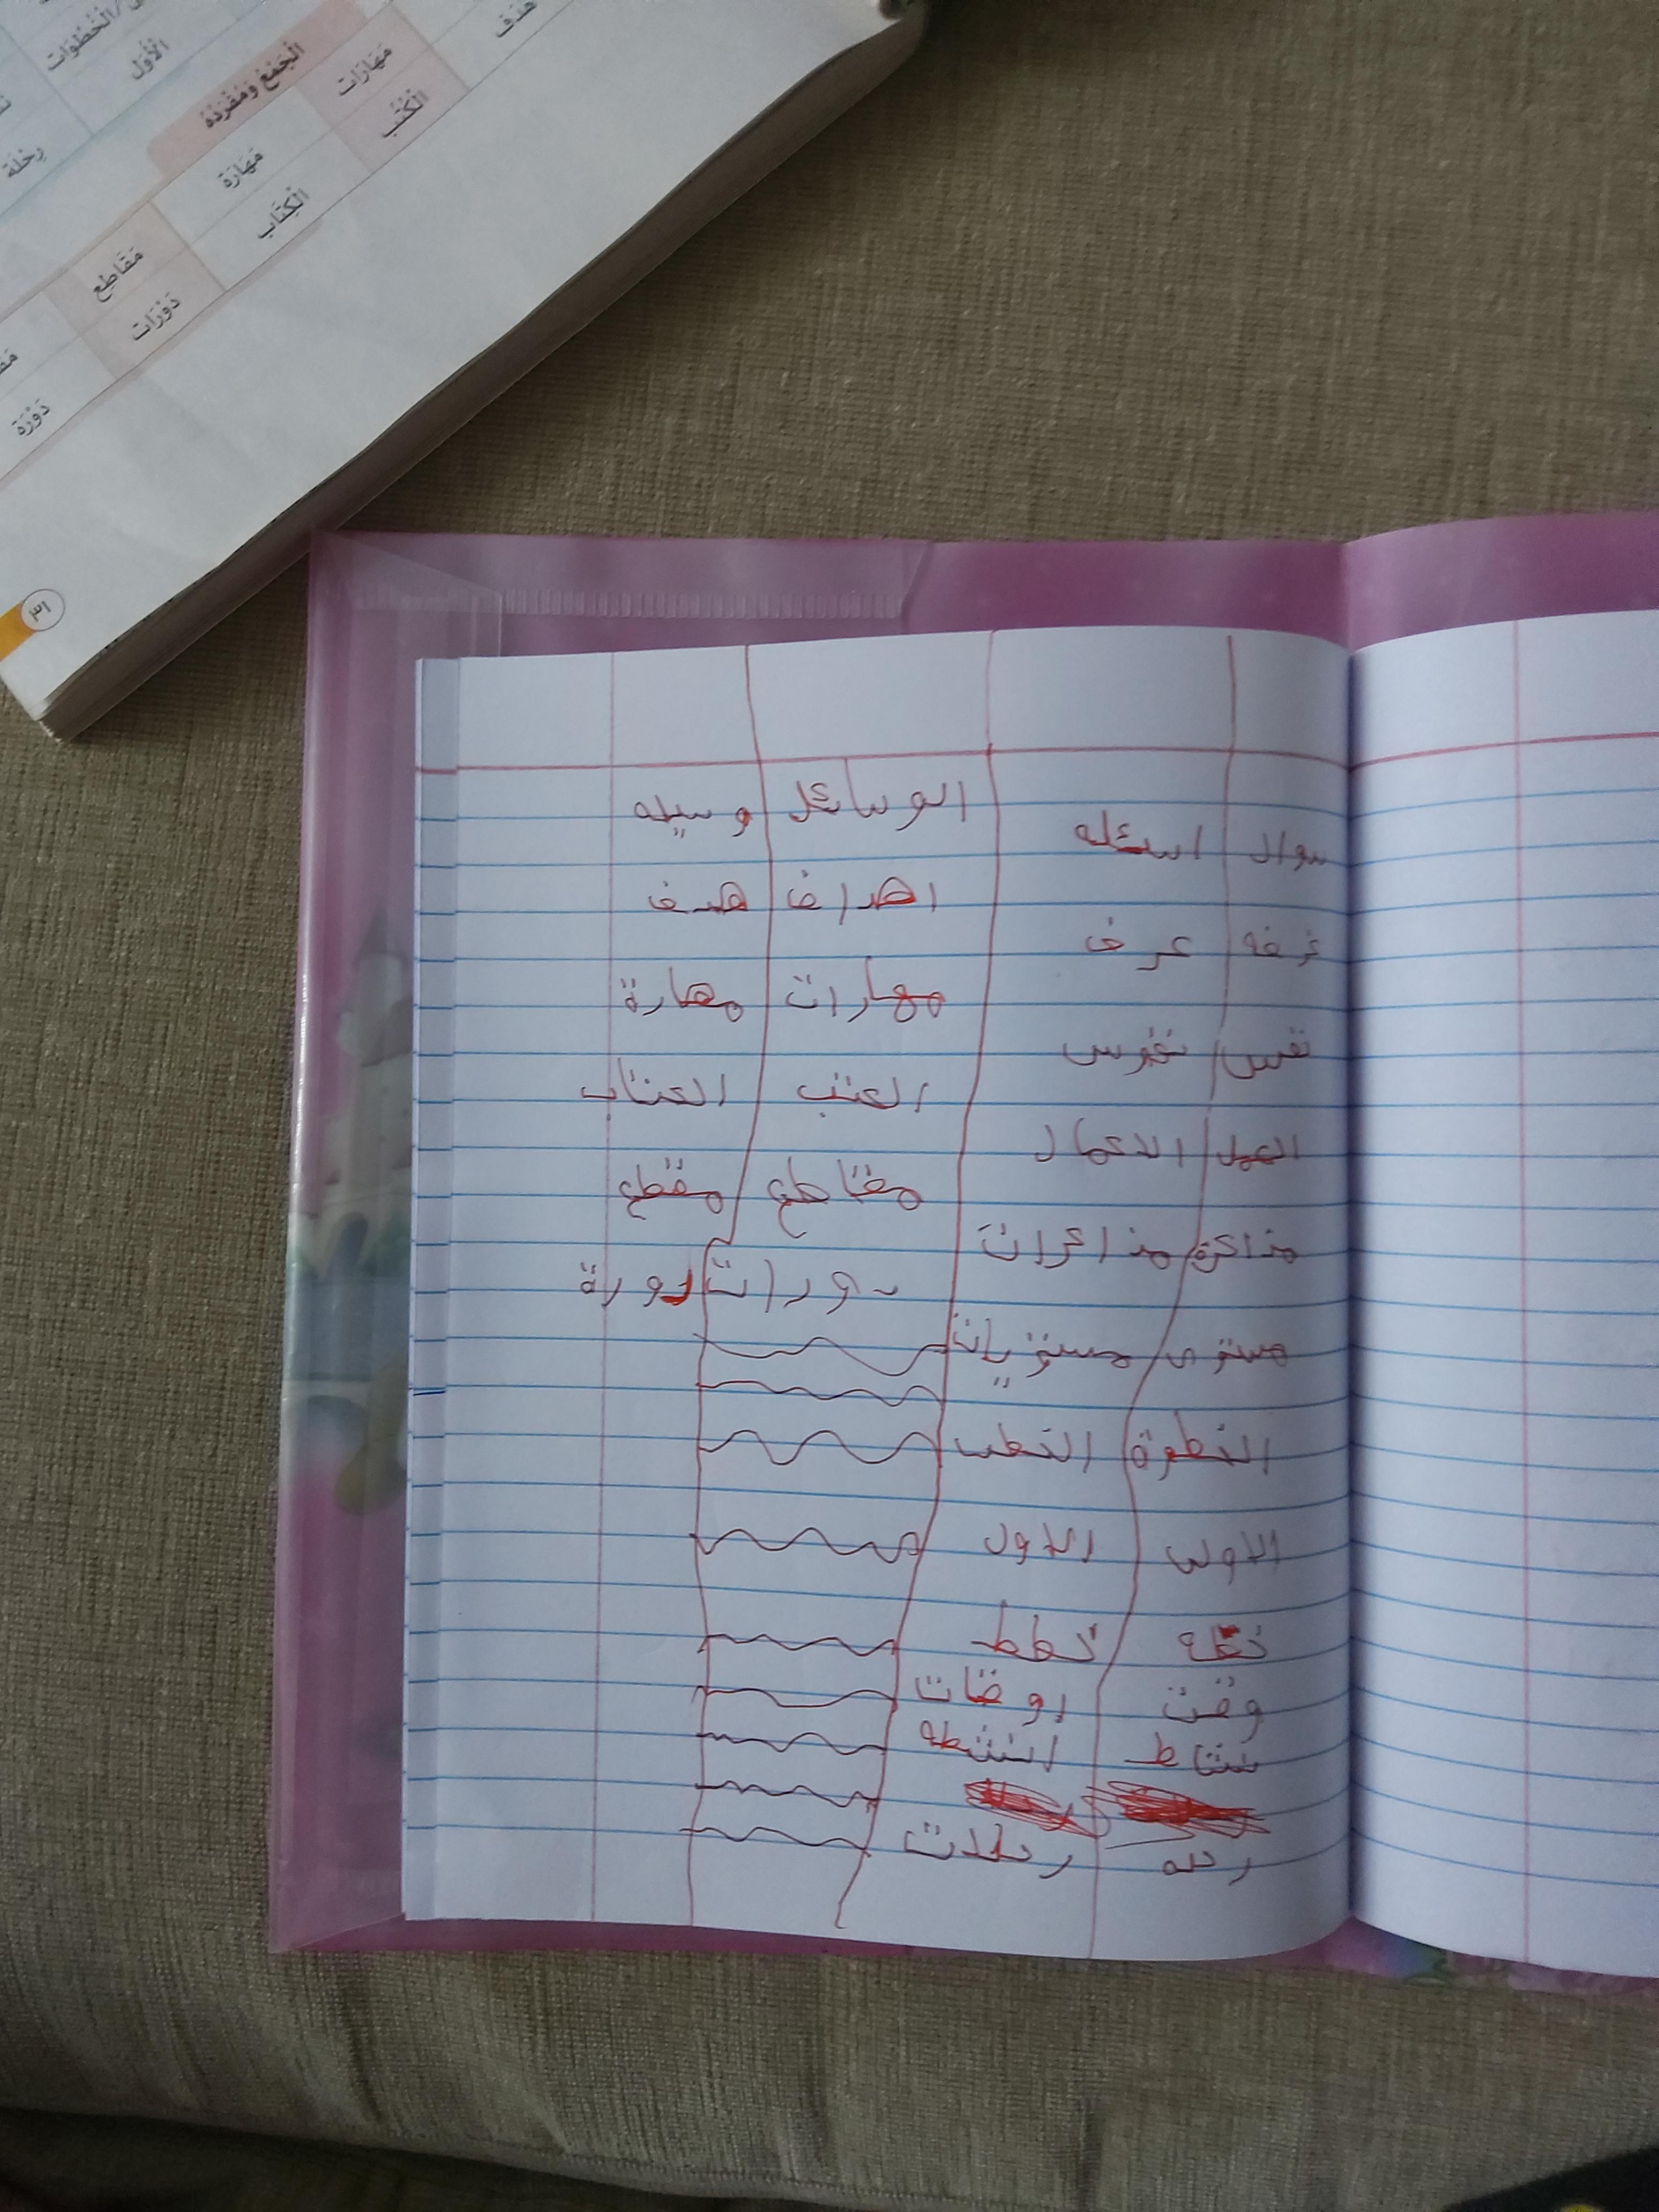 هدف
الأول
الجمع ومفرده
مهارات
الكتب
رحلة
مهارة
الكتاب
مقاطع
دورات
دورة
٣١
سوال اسئله الوسائل وسيله
غرفه غرف اهداف هدف
نفس نفوس مهارات مهارة
العمل الاعمال الكتب الكتاب
مذاكرة مذاكرات مقاطع مقطع
مستوى مستويات دورات دورة
الخطوة الخطب
الاولى الاول
خطة خطط
وقت اوقات
نشاط انشطه
رحله رحلات